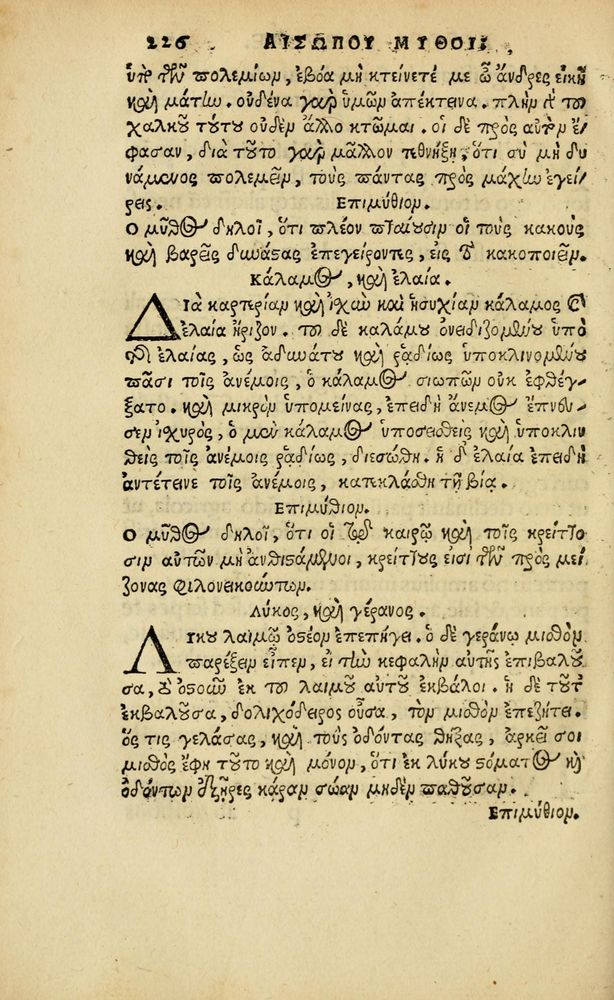 226 ΑΙΣΩΠΟΥ ΜΥΘΟΙ
ὑπὸ τῶν πολεμίων, ἐβόα μὴ κτείνετέ με ὦ ἄνδρες εἰκῆ
καὶ μάτην. οὐδένα γὰρ ὑμῶν ἀπέκτεινα. πλὴν γὰρ τοῦ
χαλκοῦ τούτου οὐδὲν ἄλλο κτῶμαι. οἱ δὲ πρὸς αὐτὸν ἔ
φασαν, διὰ τοῦτο γὰρ μᾶλλον τεθνήξῃ, ὅτι σὺ μὴ δυ
νάμενος πολεμεῖν, τοὺς πάντας πρὸς μάχην ἐγεί
ρεις. Επιμύθιον.
Ο μῦθος δηλοῖ, ὅτι πλέον πταίουσιν οἱ τοὺς κακοὺς
καὶ βαρεῖς δυνάστας ἐπεγείροντες, εἰς τὸ κακοποιεῖν.
Κάλαμος, καὶ ἐλαία.
ΔΙὰ καρτερίαν καὶ ἰχὺν καὶ ἡσυχίαν κάλαμος καὶ
ἐλαία ἤριζον. τοῦ δὲ καλάμου ὀνειδιζομένου ὑπὸ
τῆς ἐλαίας, ὡς ἀδυνάτου καὶ ῥαδίως ὑποκλινομένου
πᾶσι τοῖς ἀνέμοις, ὁ κάλαμος σιωπῶν οὐκ ἐφθέγ
ξατο. καὶ μικρὸν ὑπομείνας, ἐπειδὴ ἄνεμος ἔπνευ
σεν ἰχυρός, ὁ μὲν κάλαμος ὑποσεισθεὶς καὶ ὑποκλιν
θεὶς τοῖς ἀνέμοις ῥᾳδίως, διεσώθη. ἡ δ' ἐλαία ἐπειδὴ
ἀντέτεινε τοῖς ἀνέμοις, κατεκλάσθη τῇ βίᾳ.
Επιμύθιον.
Ο μῦθος δηλοῖ, ὅτι οἱ τῷ καιρῷ καὶ τοῖς κρείττο
σιν αὐτῶν μὴ ἀνθιστάμενοι, κρείττους εἰσὶ τῶν πρὸς μεί
ζονας φιλονεικούντων.
Λύκος, καὶ γέρανος.
ΛΥκου λαιμῷ ὀστέον ἐπεπήγει. ὁ δὲ γεράνῳ μισθὸν
παρέξειν εἶπεν, εἰ τὴν κεφαλὴν αὐτῆς ἐπιβαλοῦ
σα, τὸ ὀστοῦν ἐκ τοῦ λαιμοῦ αὐτοῦ ἐκβάλοι. ἡ δὲ τοῦτ'
ἐκβαλοῦσα, δολιχόδειρος οὖσα, τὸν μισθὸν ἐπεζήτει.
ὅς τις γελάσας, καὶ τοὺς ὀδόντας θήξας, ἀρκεῖ σοι
μισθὸς ἔφη τοῦτο καὶ μόνον, ὅτι ἐκ λύκου στόματος καὶ
ὀδόντων ἐξῇρες κάραν σώαν μηδὲν παθοῦσαν.
Επιμύθιον.